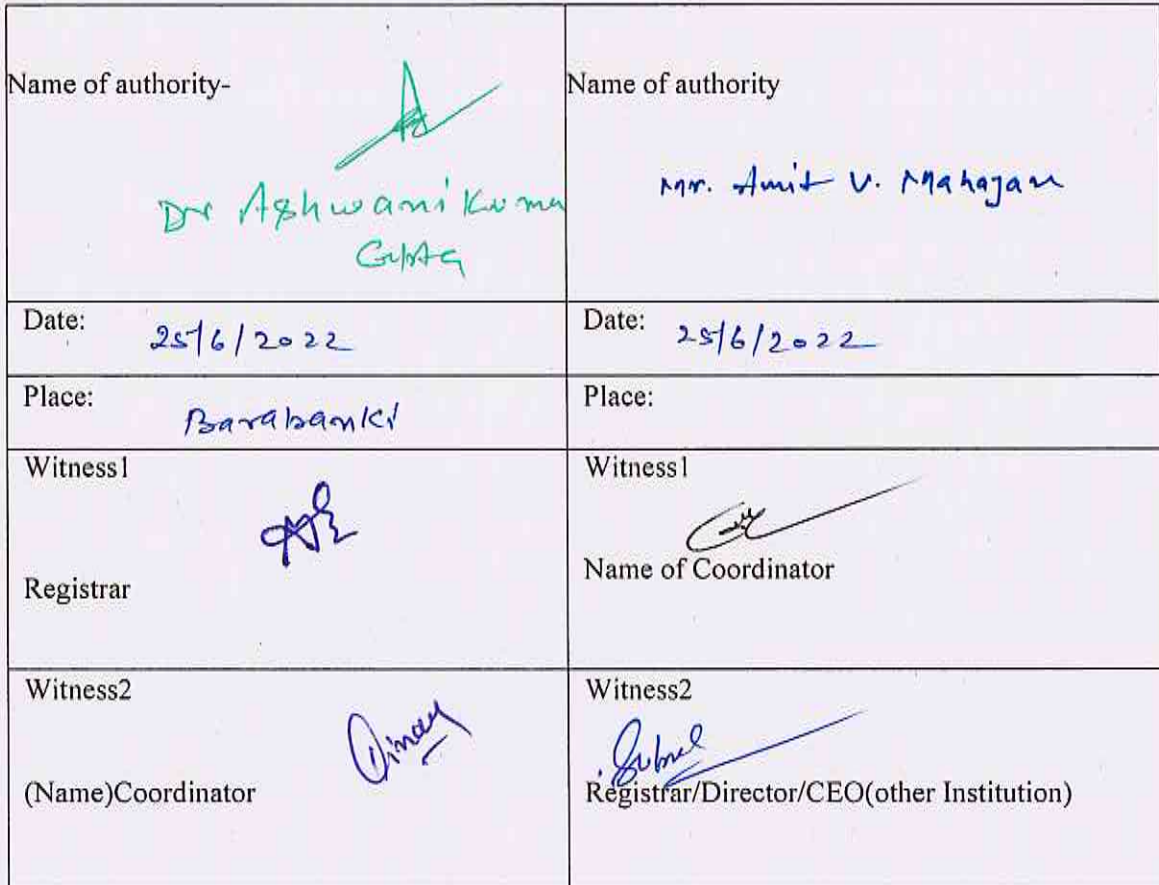 Name of authority-
Dr Ashwani Kumar
Gupta
Name of authority
Mr. Amit V. Mahajan
Date: 25/6/2022
Date: 25/6/2022
Place: Barabanki
Place:
Witness1
Registrar
Witness1
Name of Coordinator
Witness2
(Name)Coordinator
Witness2
Registrar/Director/CEO(other Institution)